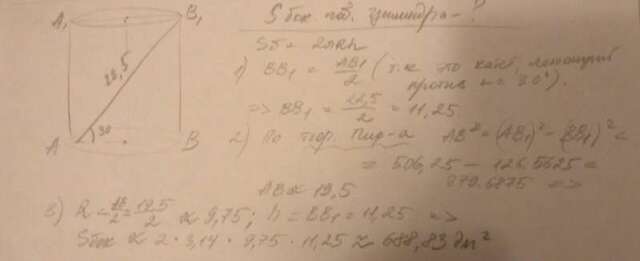 A₁ B₁
22,5
30
A B
S бок. пов. цилиндра - ?
Sб = 2πRh
1) BB₁ = AB₁/2 (т.к это катет, лежащий
против ∠ = 30°).
=> BB₁ = 22,5/2 = 11,25
2) По теор. Пиф-а AB² = (AB₁)² - (BB₁)² =
= 506,25 - 126.5625 =
379.6875 =>
AB ≈ 19,5
3) R = AB/2 = 19,5/2 ≈ 9,75; h = BB₁ = 11,25 =>
Sбок ≈ 2 · 3,14 · 9,75 · 11,25 ≈ 688,83 дм²